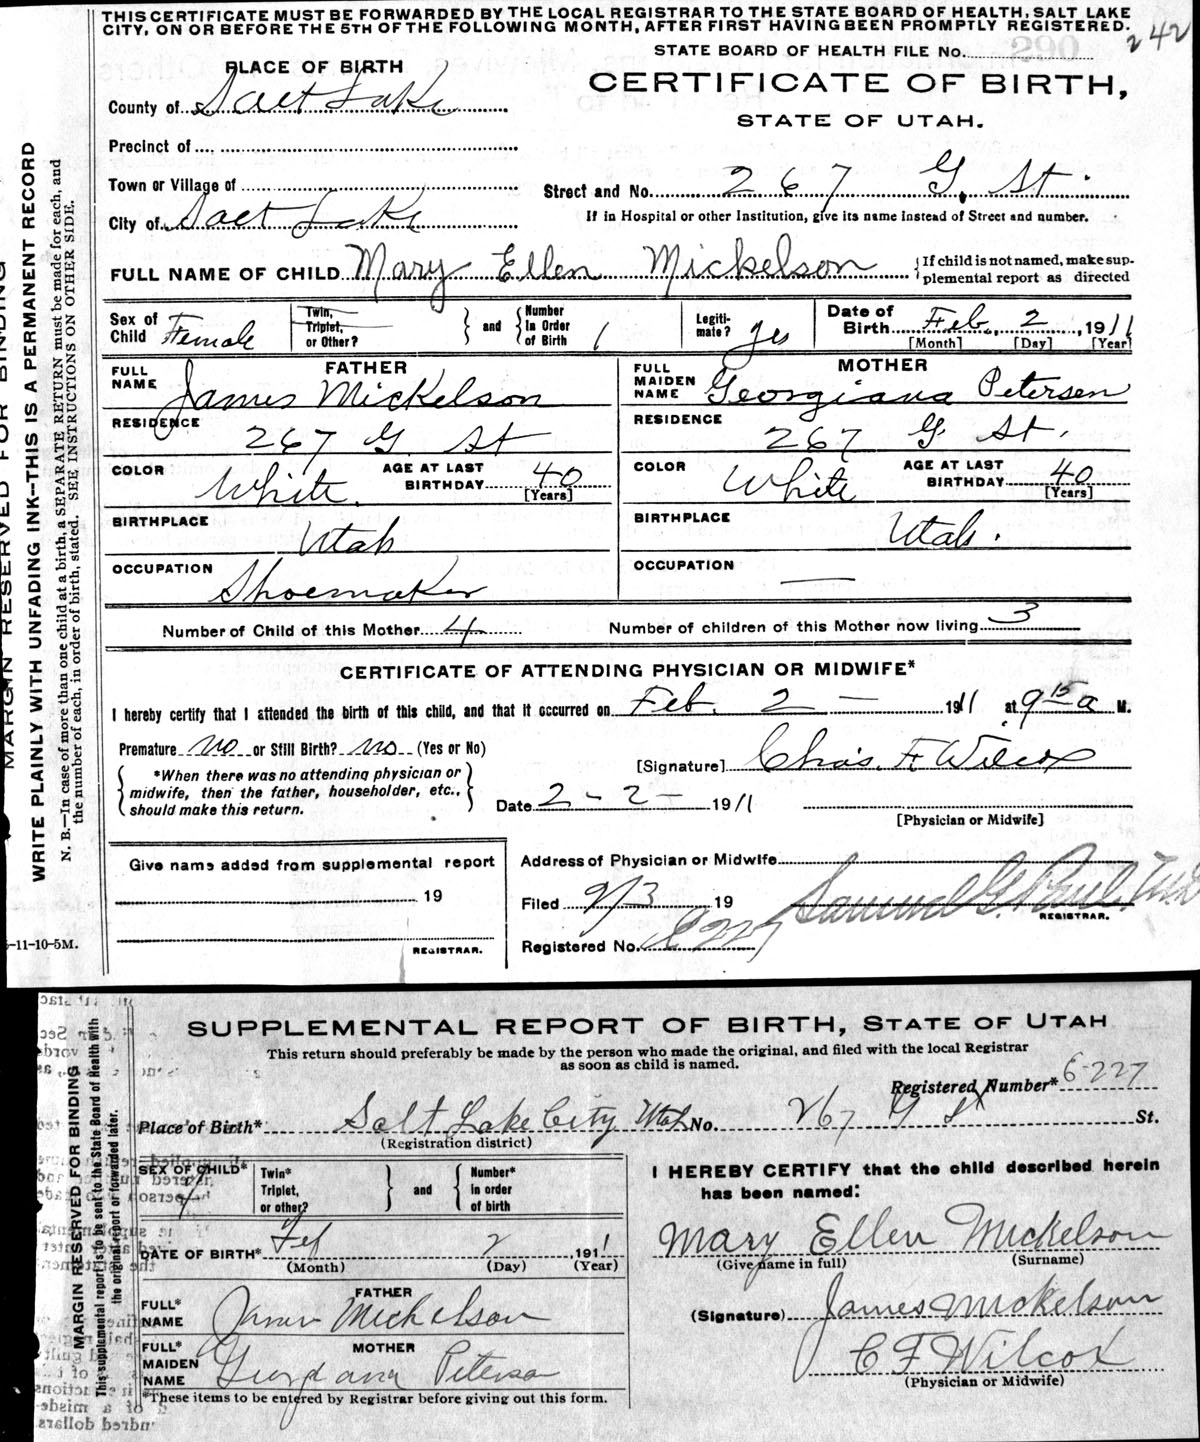 THIS CERTIFICATE MUST BE FORWARDED BY THE LOCAL REGISTRAR TO THE STATE BOARD OF HEALTH, SALT LAKE
CITY, ON OR BEFORE THE 5TH OF THE FOLLOWING MONTH, AFTER FIRST HAVING BEEN PROMPTLY REGISTERED.
242
STATE BOARD OF HEALTH FILE No. 290
PLACE OF BIRTH
CERTIFICATE OF BIRTH,
STATE OF UTAH.
County of Salt Lake
Precinct of
Town or Village of
Street and No. 267 G. St.
City of Salt Lake
If in Hospital or other Institution, give its name Instead of Street and number.
FULL NAME OF CHILD Mary Ellen Mickelson
If child is not named, make sup-
plemental report as directed
Sex of Child Female
Twin, Triplet, or Other? and Number In Order of Birth 1
Legiti-mate? yes
Date of Birth Feb. 2, 1911
[Month] [Day] [Year]
FATHER
FULL NAME James Mickelson
RESIDENCE 267 G St
COLOR White AGE AT LAST BIRTHDAY 40 [Years]
BIRTHPLACE Utah
OCCUPATION Shoemaker
MOTHER
FULL MAIDEN NAME Georgiana Petersen
RESIDENCE 267 G. St.
COLOR White AGE AT LAST BIRTHDAY 40 [Years]
BIRTHPLACE Utah.
OCCUPATION —
Number of Child of this Mother 4 Number of children of this Mother now living 3
CERTIFICATE OF ATTENDING PHYSICIAN OR MIDWIFE*
I hereby certify that I attended the birth of this child, and that it occurred on Feb. 2 — 1911 at 9 15 a M.
Premature no or Still Birth? no (Yes or No)
*When there was no attending physician or
midwife, then the father, householder, etc.,
should make this return.
[Signature] Chas. F. Wilcox
Date 2-2- 1911
[Physician or Midwife]
Give name added from supplemental report
19
REGISTRAR.
Address of Physician or Midwife
Filed 2/3 19 Samuel G. Paul, M.D.
REGISTRAR.
Registered No.
MARGIN RESERVED FOR BINDING
WRITE PLAINLY WITH UNFADING INK—THIS IS A PERMANENT RECORD
N. B.—In case of more than one child at a birth, a SEPARATE RETURN must be made for each, and
the number of each, in order of birth, stated. SEE INSTRUCTIONS ON OTHER SIDE.
-11-10-5M.
SUPPLEMENTAL REPORT OF BIRTH, STATE OF UTAH
This return should preferably be made by the person who made the original, and filed with the local Registrar
as soon as child is named.
Registered Number* 6-227
Place of Birth* Salt Lake City Utah No. 267 G St St.
(Registration district)
SEX OF CHILD* f
Twin* Triplet, or other? and Number* in order of birth
DATE OF BIRTH* Feb 2, 1911
(Month) (Day) (Year)
FATHER
FULL* NAME James Mickelson
MOTHER
FULL* MAIDEN NAME
*These items to be entered by Registrar before giving out this form.
I HEREBY CERTIFY that the child described herein
has been named:
Mary Ellen Mickelson
(Give name in full) (Surname)
(Signature) James Mickelson
C F Wilcox
(Physician or Midwife)
MARGIN RESERVED FOR BINDING
This supplemental report is to be sent to the State Board of Health with
the original report or forwarded later.